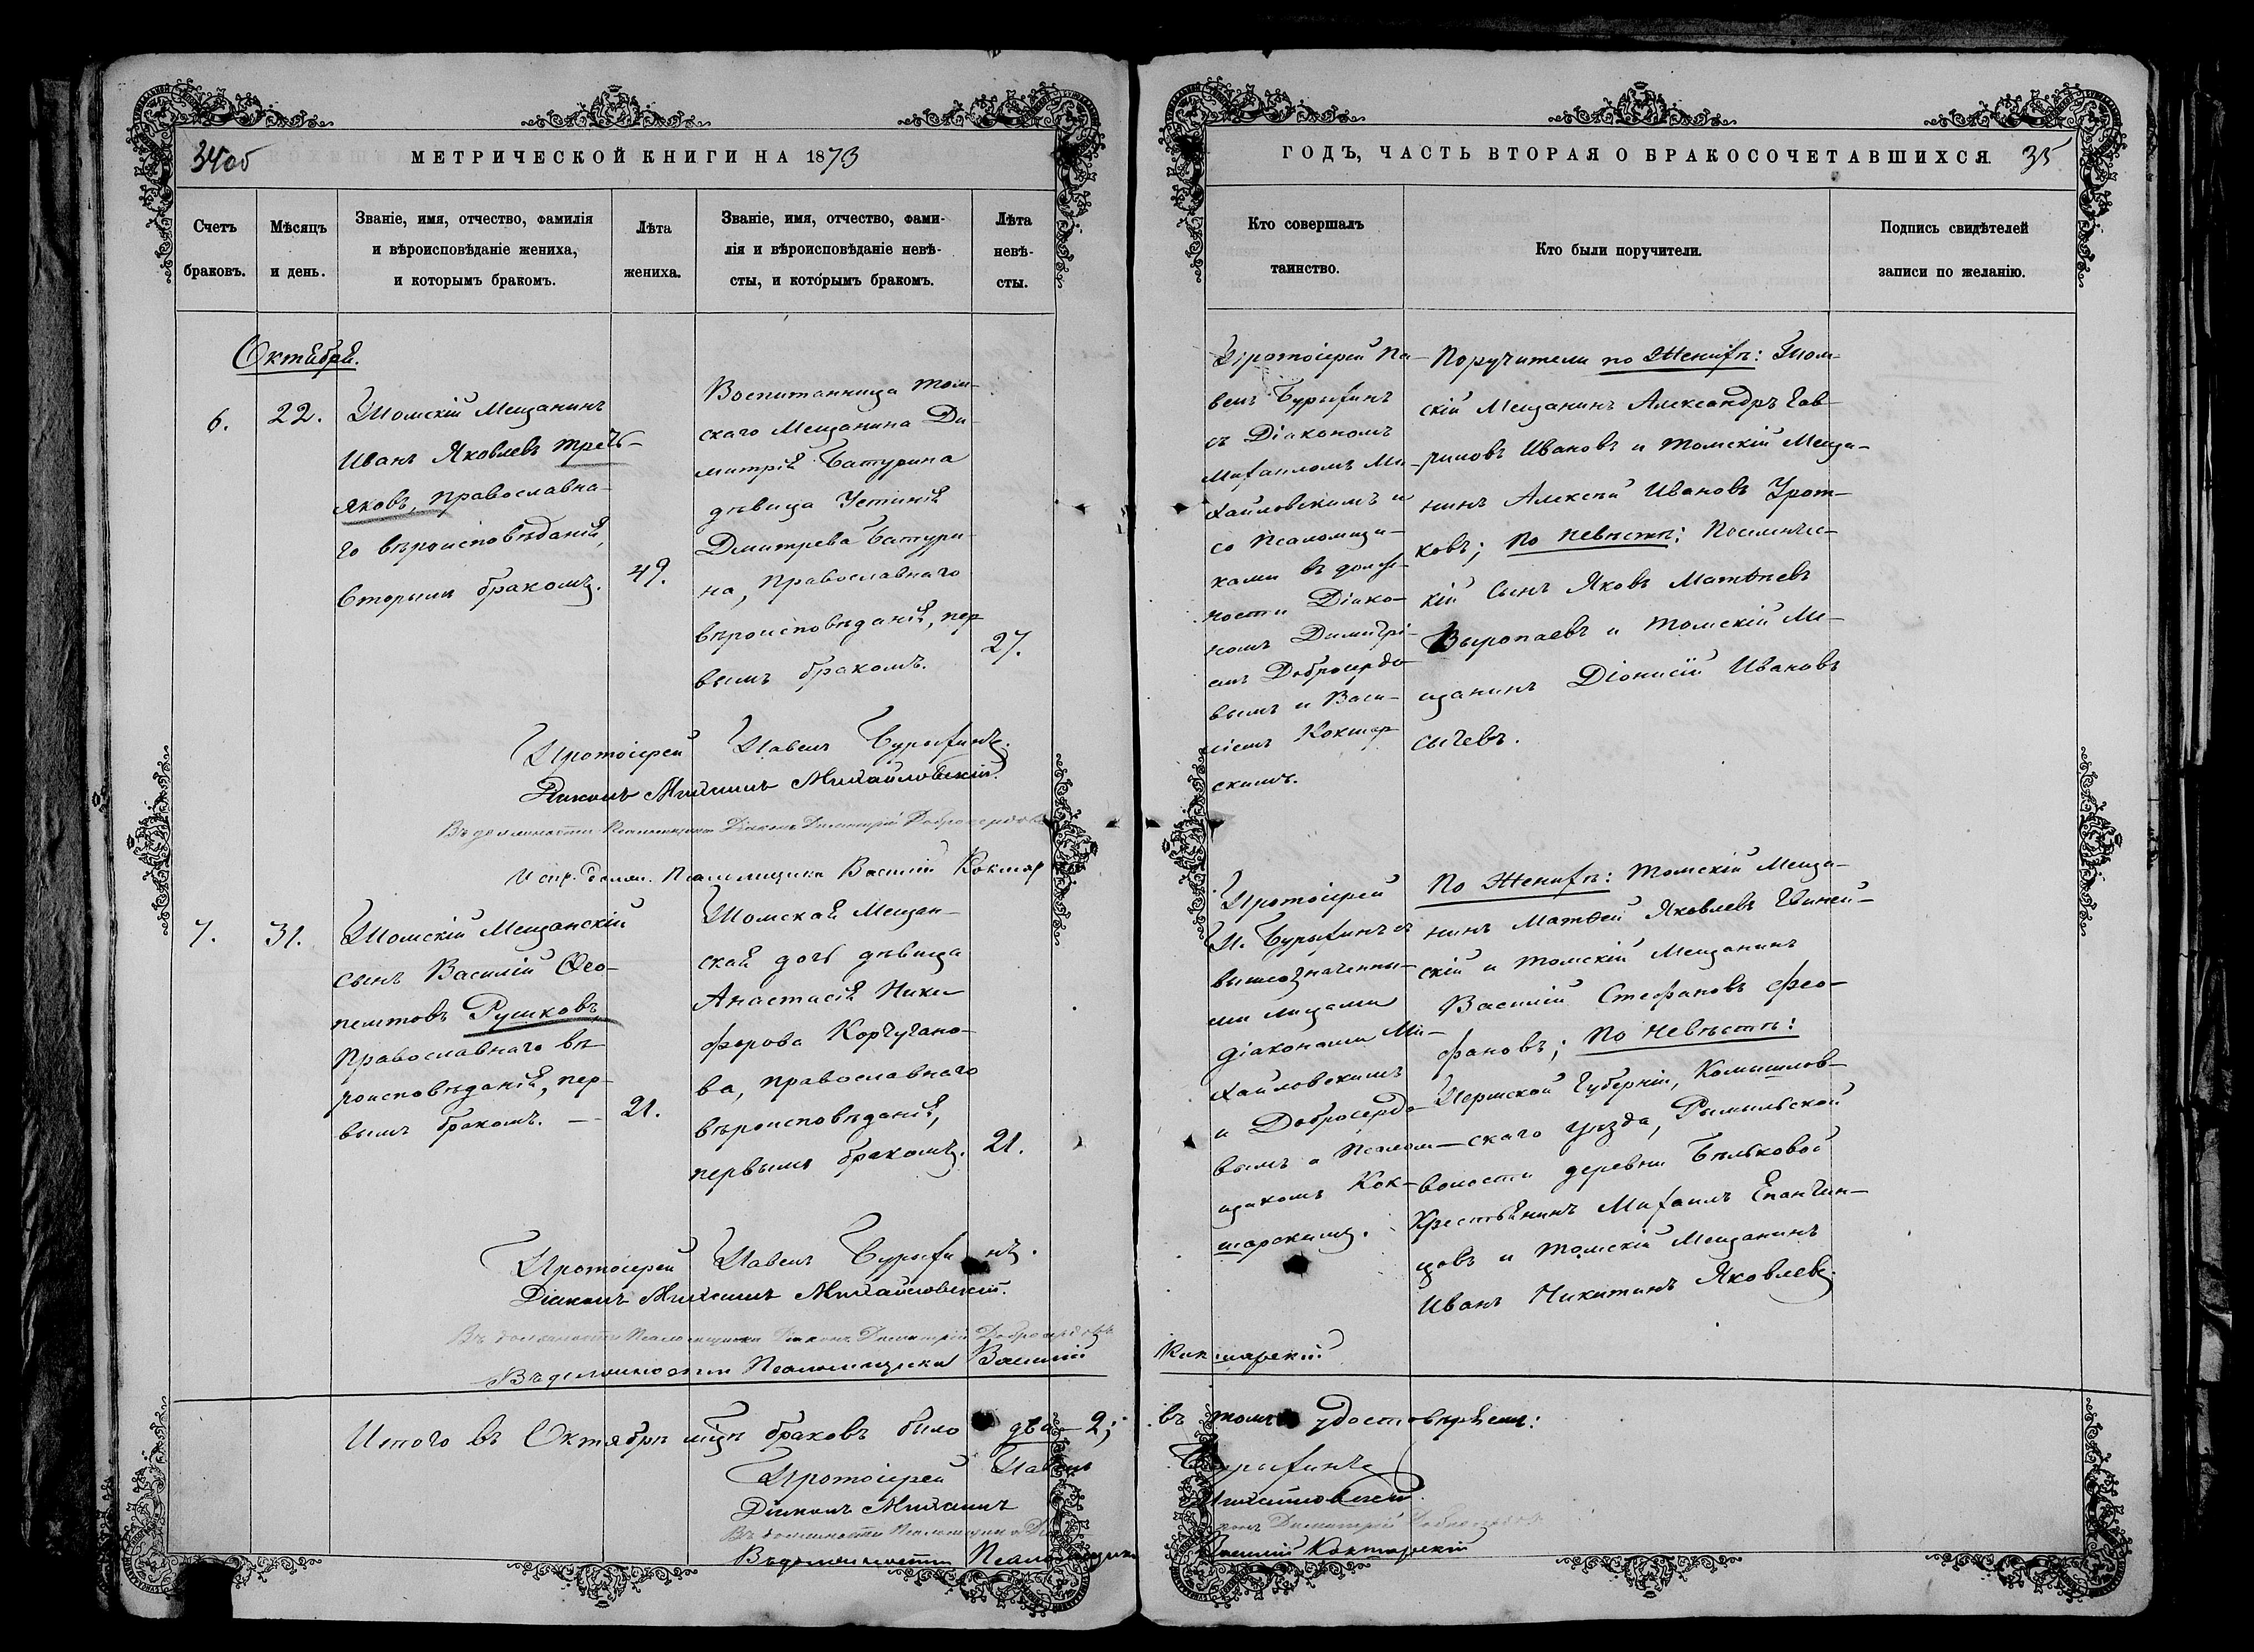 34об
МЕТРИЧЕСКОЙ КНИГИ НА 1873
Счетъ
браковъ.
Мѣсяцъ
и день.
Званіе, имя, отчество, фамилія
и вѣроисповѣданіе жениха,
и которымъ бракомъ.
Лѣта
жениха.
Званіе, имя, отчество, фами-
лія и вѣроисповѣданіе невѣ-
сты, и которымъ бракомъ.
Лѣта
невѣ-
сты.
Октября.
6.
22.
Томскій Мещанинъ
Иванъ Яковлевъ Треть-
яковъ, православна-
го вѣроисповѣданія,
вторымъ бракомъ.
49.
Воспитанница Том-
скаго Мещанина Ди-
митрія Батурина
дѣвица Устинія
Дмитрева Батури-
на, православнаго
вѣроисповѣданія, пер-
вымъ бракомъ.
27.
Протоіерей Павелъ
Діаконъ Михаилъ Михайловскій.
Въ должности Псаломщика Діаконъ Димитрій Добросердовъ
Испр. должн. Псаломщика Василій
7.
31.
Томскій Мещанскій
сынъ Василій Ѳео-
пемптовъ Рушковъ,
Православнаго вѣ-
роисповѣданія, пер-
вымъ бракомъ. —
21.
Томская Мещан-
ская дочь дѣвица
Анастасія Ники-
форова Корчугано-
ва, православнаго
вѣроисповѣданія,
первымъ бракомъ.
21.
Протоіерей Павелъ
Діаконъ Михаилъ Михайловскій.
Въ должности Псаломщика Діаконъ Димитрій Добросердовъ
Въ должности Псаломщика Василій
Итого въ Октябрѣ мцѣ браковъ было два — 2;
Протоіерей Павелъ
Діаконъ Михаилъ
Въ должности Псаломщика
Въ должности Псаломщика
ГОДЪ, ЧАСТЬ ВТОРАЯ О БРАКОСОЧЕТАВШИХСЯ.
35
Кто совершалъ
таинство.
Кто были поручители.
Подпись свидѣтелей
записи по желанію.
Протоіерей Па-
велъ
съ Діакономъ
Михаиломъ Ми-
хайловскимъ и
со Псаломщи-
ками въ долж-
ности Діако-
номъ Димитрі-
емъ Добросердо-
вымъ и Васи-
ліемъ Кокшар-
скимъ.
Поручители по Женихѣ: Том-
скій Мещанинъ Александръ Гав-
риловъ Ивановъ и Томскій Меща-
нинъ Алексѣй Ивановъ
по невѣстѣ: Поселенчес-
кій сынъ Яковъ Матѳѣевъ
Выропаевъ и Томскій Ме-
щанинъ Діонисій Ивановъ
Сычевъ.
Протоіерей
П.
вышеозначенны-
ми лицами
діаконами Ми-
хайловскимъ
и Добросердо-
вымъ и Псалом-
щикомъ Кок-
шарскимъ.
По Женихѣ: Томскій Меща-
нинъ Матѳей Яковлевъ
и Томскій Мещанинъ
Василій Стефановъ Фео-
фановъ; По невѣстѣ:
Пермской Губерніи, Камышлов-
скаго уѣзда,
волости деревни Бѣльковой
Крестьянинъ Михаилъ Епанчин-
цовъ и Томскій Мещанинъ
Иванъ Никитинъ Яковлевъ.
Кокшарскій
въ томъ удостовѣряемъ:
Михайловскій.
Димитрій Добросердовъ
Василій Кокшарскій